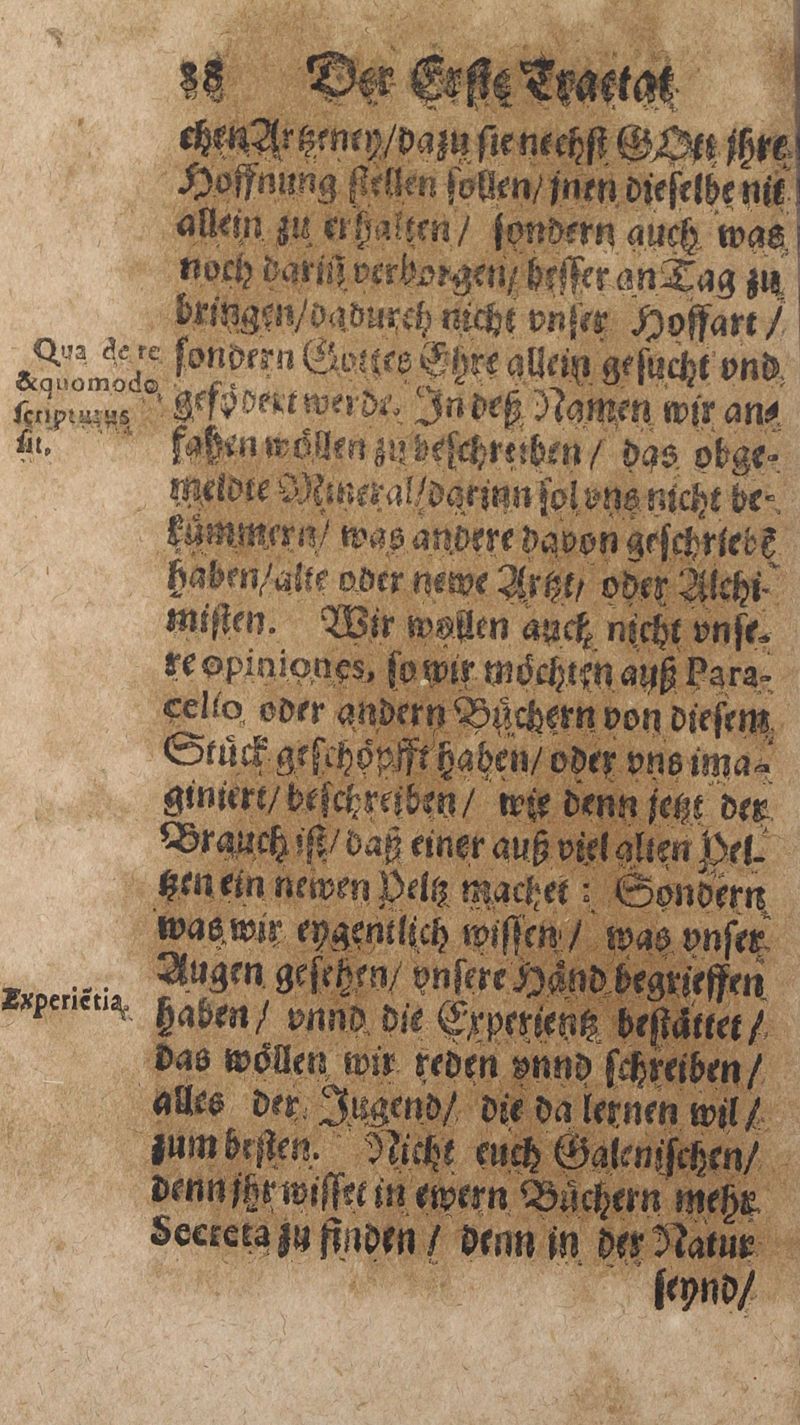 38 Der Erſte Tractat
chen Artzeney/dazu ſie nechſt GOtt jhre
Hoffnung ſtellen ſollen/ jnen dieſelbe nit
allein zu erhalten/ ſondern auch was
noch dariñ verborgen/ beſſer an Tag zu
bringen/dadurch nicht vnſer Hoffart/
ſondern Gottes Ehre allein geſucht vnd
gefödert werde. In deß Namen wir an-
fahen wöllen zu beſchreiben/ das obge-
meldte Mineral/darinn ſol vns nicht be-
kümmern/ was andere davon geſchriebẽ
haben/alte oder newe Artzt/ oder Alchi-
miſten. Wir wollen auch nicht vnſe-
re opiniones, ſo wir möchten auß Para-
celſo oder andern Büchern von dieſem
Stück geſchöpfft haben/ oder vns ima-
giniert/ beſchreiben/ wie denn jetzt der
Brauch iſt/ daß einer auß viel alten Pel-
tzen ein newen Peltz machet: Sondern
was wir eygentlich wiſſen/ was vnſer
Augen geſehen/ vnſere Händ begrieffen
haben/ vnnd die Experientz beſtättet/
das wöllen wir reden vnnd ſchreiben/
alles der Jugend/ die da lernen wil/
zum beſten. Nicht euch Galeniſchen/
denn jhr wiſſet in ewern Büchern mehr
Secreta zu finden/ denn in der Natur
ſeynd/
Qua de re
&quomodo
ſcripturus
ſit.
Experiẽtia.